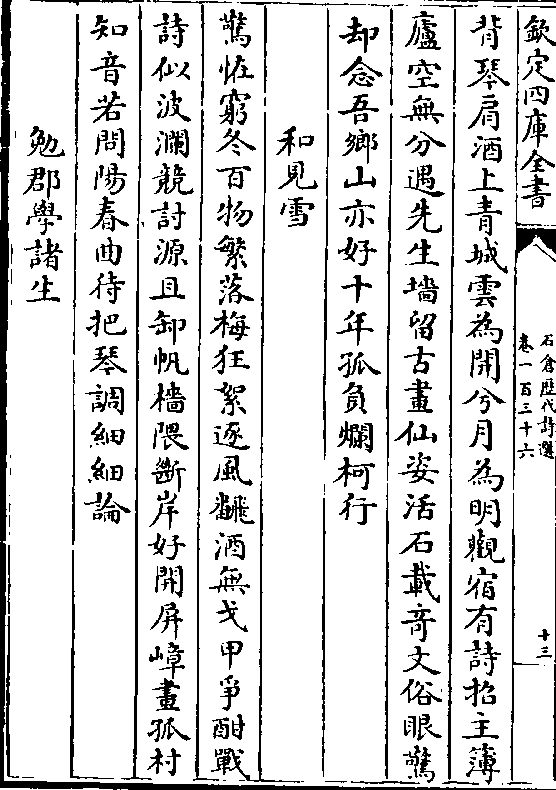 欽定四庫全書
石倉歴代詩選
卷一百三十六
十三
背琴肩酒上青城雲為開兮月為明觀宿有詩招主簿
廬空無分遇先生墻留古畫仙姿活石載竒文俗眼驚
却念吾鄉山亦好十年孤負爛柯行
和見雪
驚怪窮冬百物繁落梅狂絮逐風飜酒無戈甲爭酣戰
詩似波瀾競討源且卸帆檣隈斷岸好開屏嶂畫孤村
知音若問陽春曲待把琴調細細論
勉郡學諸生